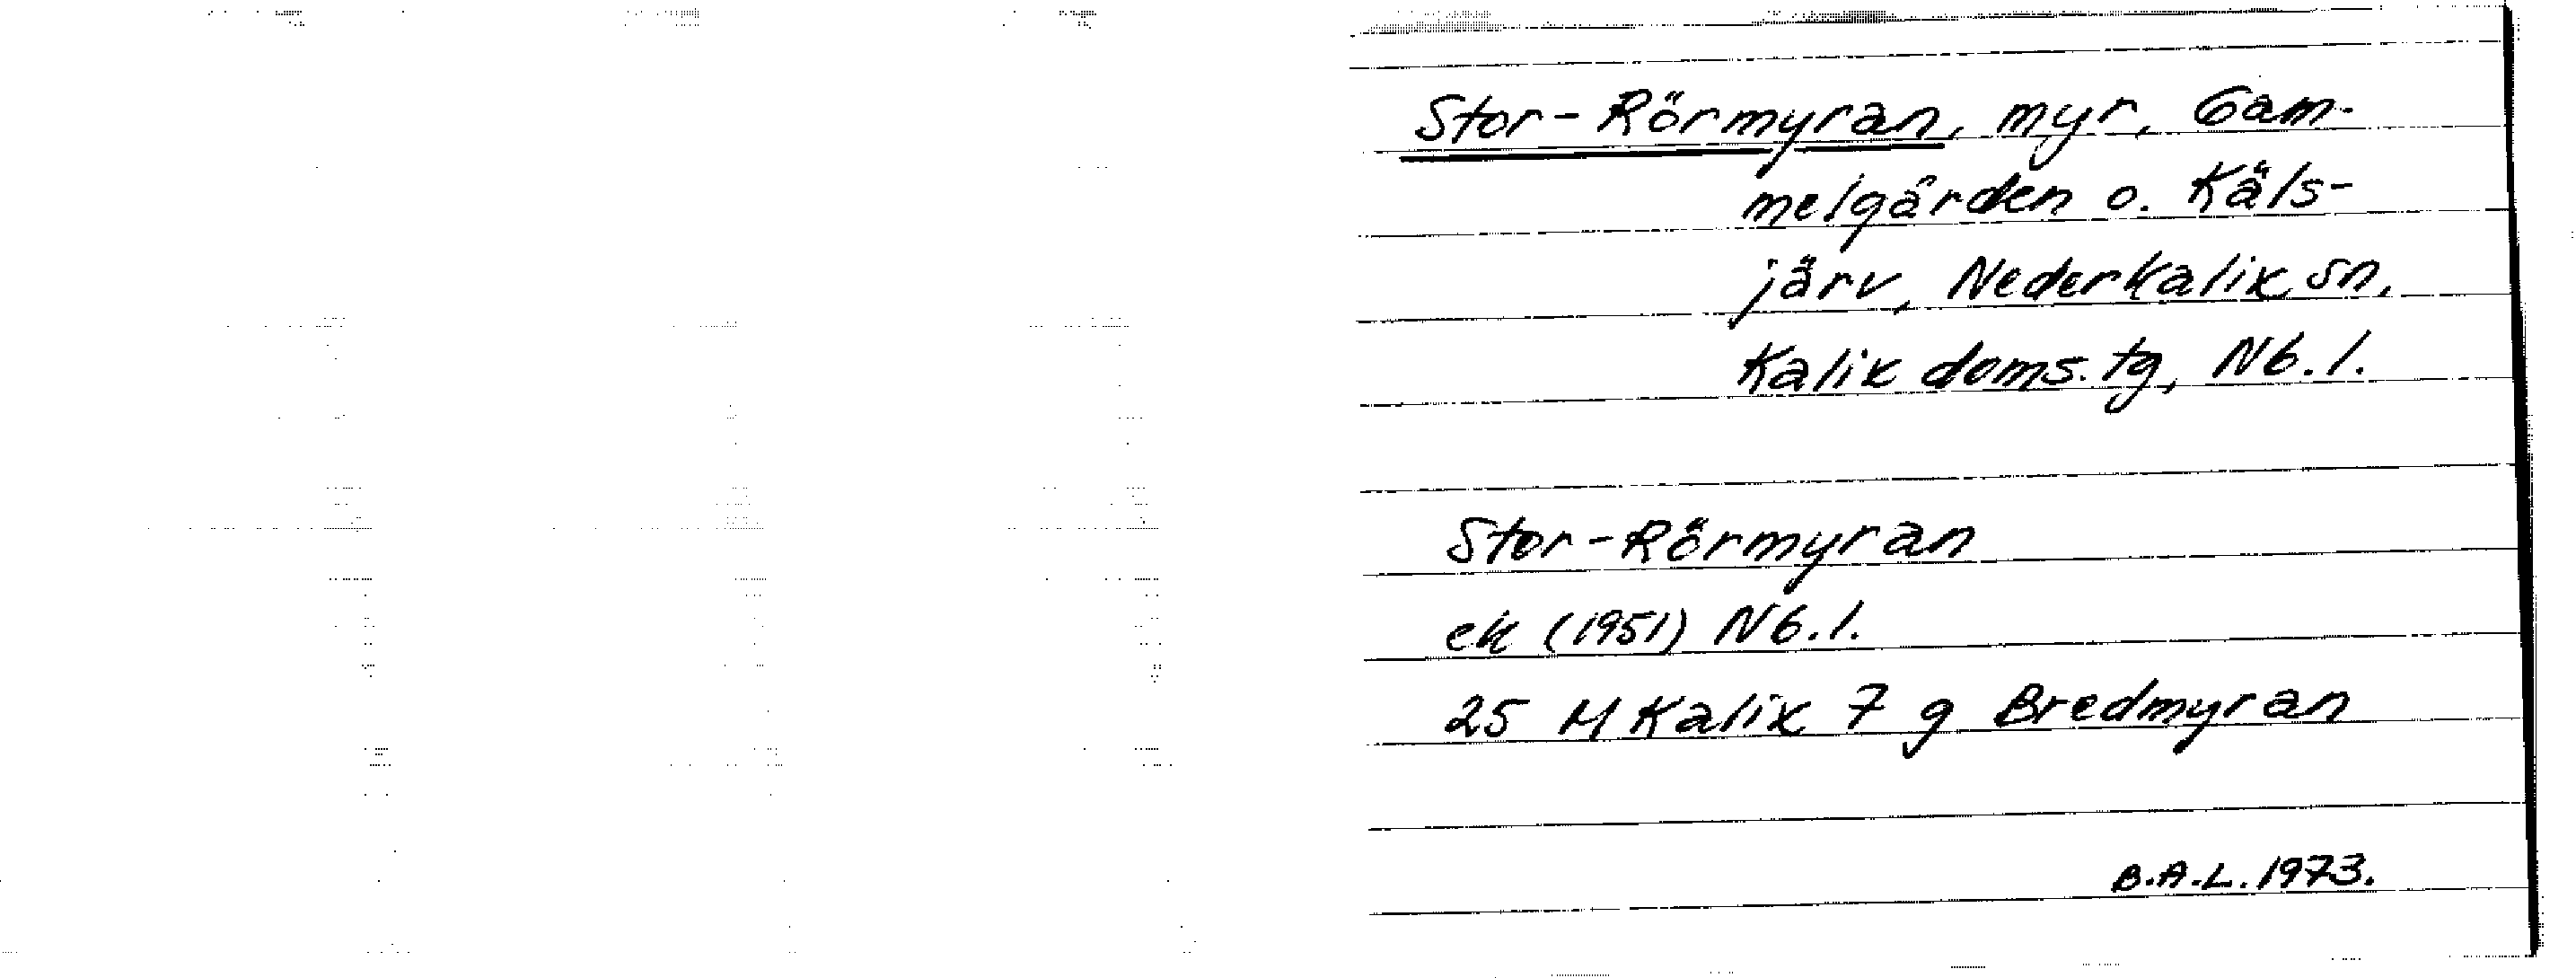 Stor-Rörmyran, myr, Gam-
melgården o. Käls-
järv, Nederkalix sn,
Kalix doms. tg, Nb. l.
Stor-Rörmyran
ek (1951) Nb. l.
25 M Kalix 7 g Bredmyran
B.A.L. 1973.